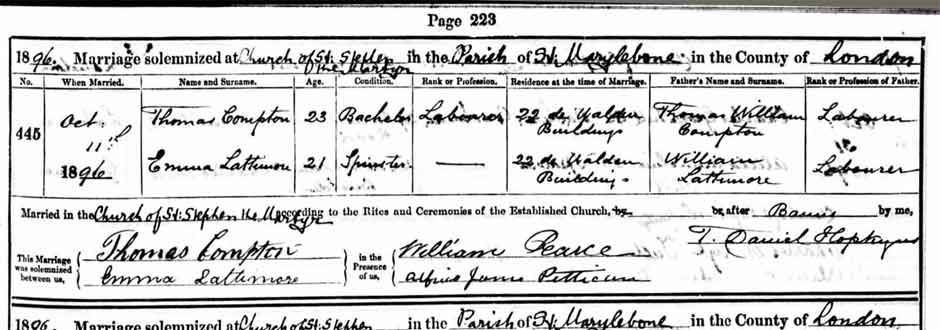 Page 223
1896. Marriage solemnized at Church of St Stephen the Martyr in the Parish of St Marylebone in the County of London
No. When Married. Name and Surname. Age. Condition. Rank or Profession. Residence at the time of Marriage. Father's Name and Surname. Rank or Profession of Father.
445 Oct. 11th 1896 Thomas Compton 23 Bachelor Labourer 22 de Walden Buildings Thomas William Compton Labourer
Emma Lattimore 21 Spinster — 22 de Walden Buildings William Lattimore Labourer
Married in the Church of St Stephen the Martyr according to the Rites and Ceremonies of the Established Church, by or after Banns by me,
T. Daniel Hopkyns
This Marriage was solemnized between us, Thomas Compton Emma Lattimore in the Presence of us, William Pearce Alfred James
1896. Marriage solemnized at Church of St Stephen in the Parish of St Marylebone in the County of London